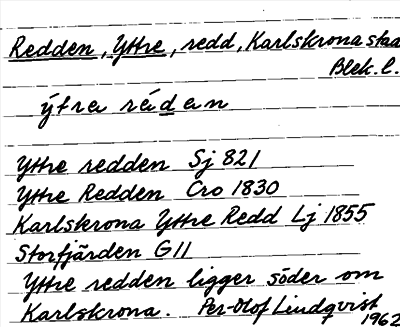 Redden, Yttre, redd, Karlskrona sta
Blek. l.
ýtra rédan
Yttre redden Sj 821
Yttre Redden Cro 1830
Karlskrona Yttre Redd Lj 1855
Storfjärden G11
Yttre redden ligger söder om
Karlskrona. Per-Olof Lindqvist
1962